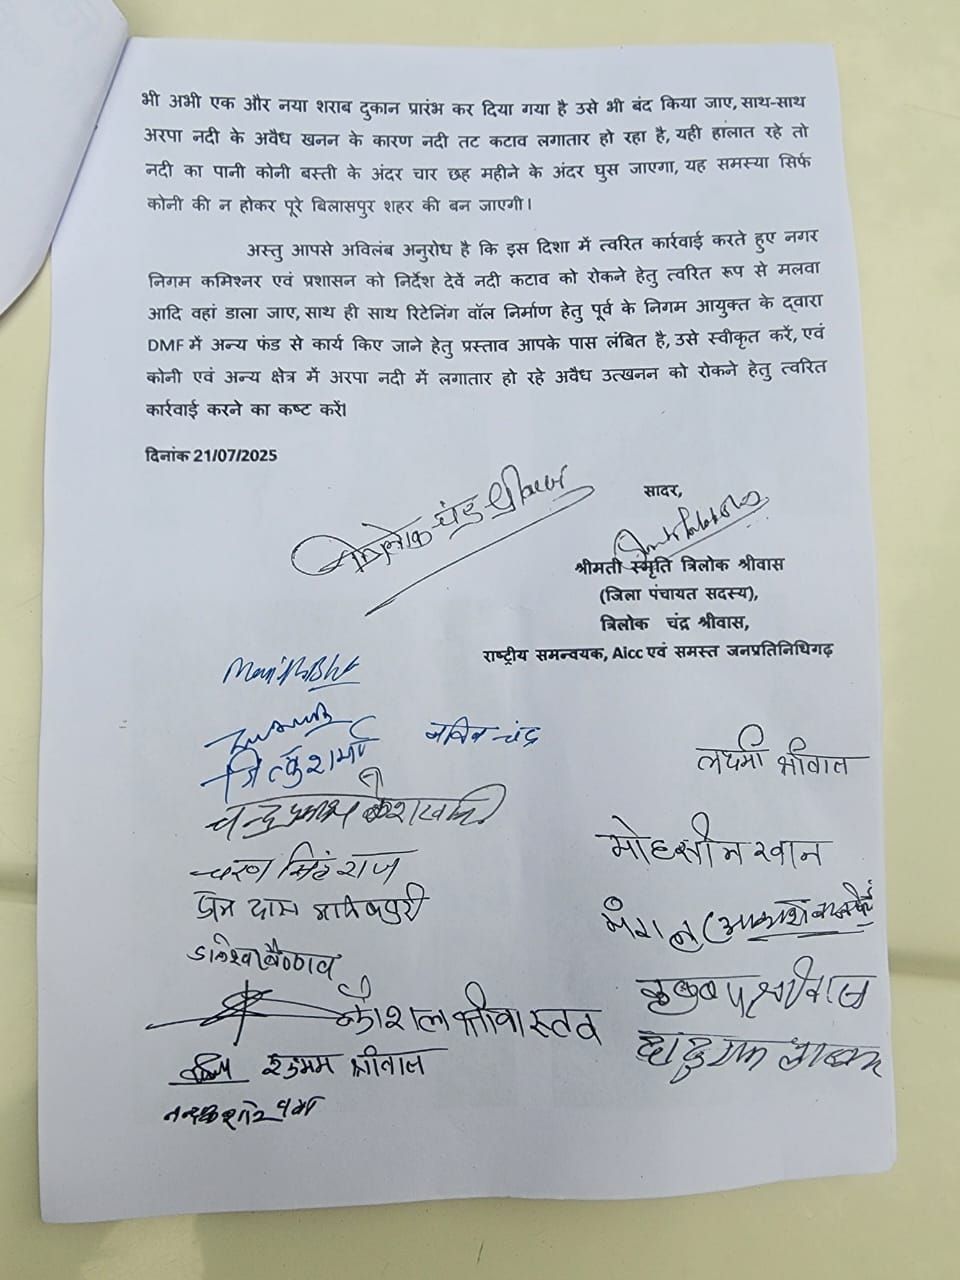 भी अभी एक और नया शराब दुकान प्रारंभ कर दिया गया है उसे भी बंद किया जाए, साथ-साथ
अरपा नदी के अवैध खनन के कारण नदी तट कटाव लगातार हो रहा है, यही हालात रहे तो
नदी का पानी कोनी बस्ती के अंदर चार छह महीने के अंदर घुस जाएगा, यह समस्या सिर्फ
कोनी की न होकर पूरे बिलासपुर शहर की बन जाएगी।
अस्तु आपसे अविलंब अनुरोध है कि इस दिशा में त्वरित कार्रवाई करते हुए नगर
निगम कमिश्नर एवं प्रशासन को निर्देश देवें नदी कटाव को रोकने हेतु त्वरित रूप से मलवा
आदि वहां डाला जाए, साथ ही साथ रिटेनिंग वॉल निर्माण हेतु पूर्व के निगम आयुक्त के द्वारा
DMF में अन्य फंड से कार्य किए जाने हेतु प्रस्ताव आपके पास लंबित है, उसे स्वीकृत करें, एवं
कोनी एवं अन्य क्षेत्र में अरपा नदी में लगातार हो रहे अवैध उत्खनन को रोकने हेतु त्वरित
कार्रवाई करने का कष्ट करें।
दिनांक 21/07/2025
सादर,
त्रिलोक चंद्र श्रीवास
श्रीमती स्मृति त्रिलोक श्रीवास
(जिला पंचायत सदस्य),
त्रिलोक चंद्र श्रीवास,
राष्ट्रीय समन्वयक, Aicc एवं समस्त जनप्रतिनिधिगढ़
शर्मा
चंद्र
लक्ष्मी श्रीवास
चन्द्र प्रकाश
मोहसीन खान
चरण सिंह राज
प्रेम दास मानिकपुरी
कौशल श्रीवास्तव
शुभम श्रीवास